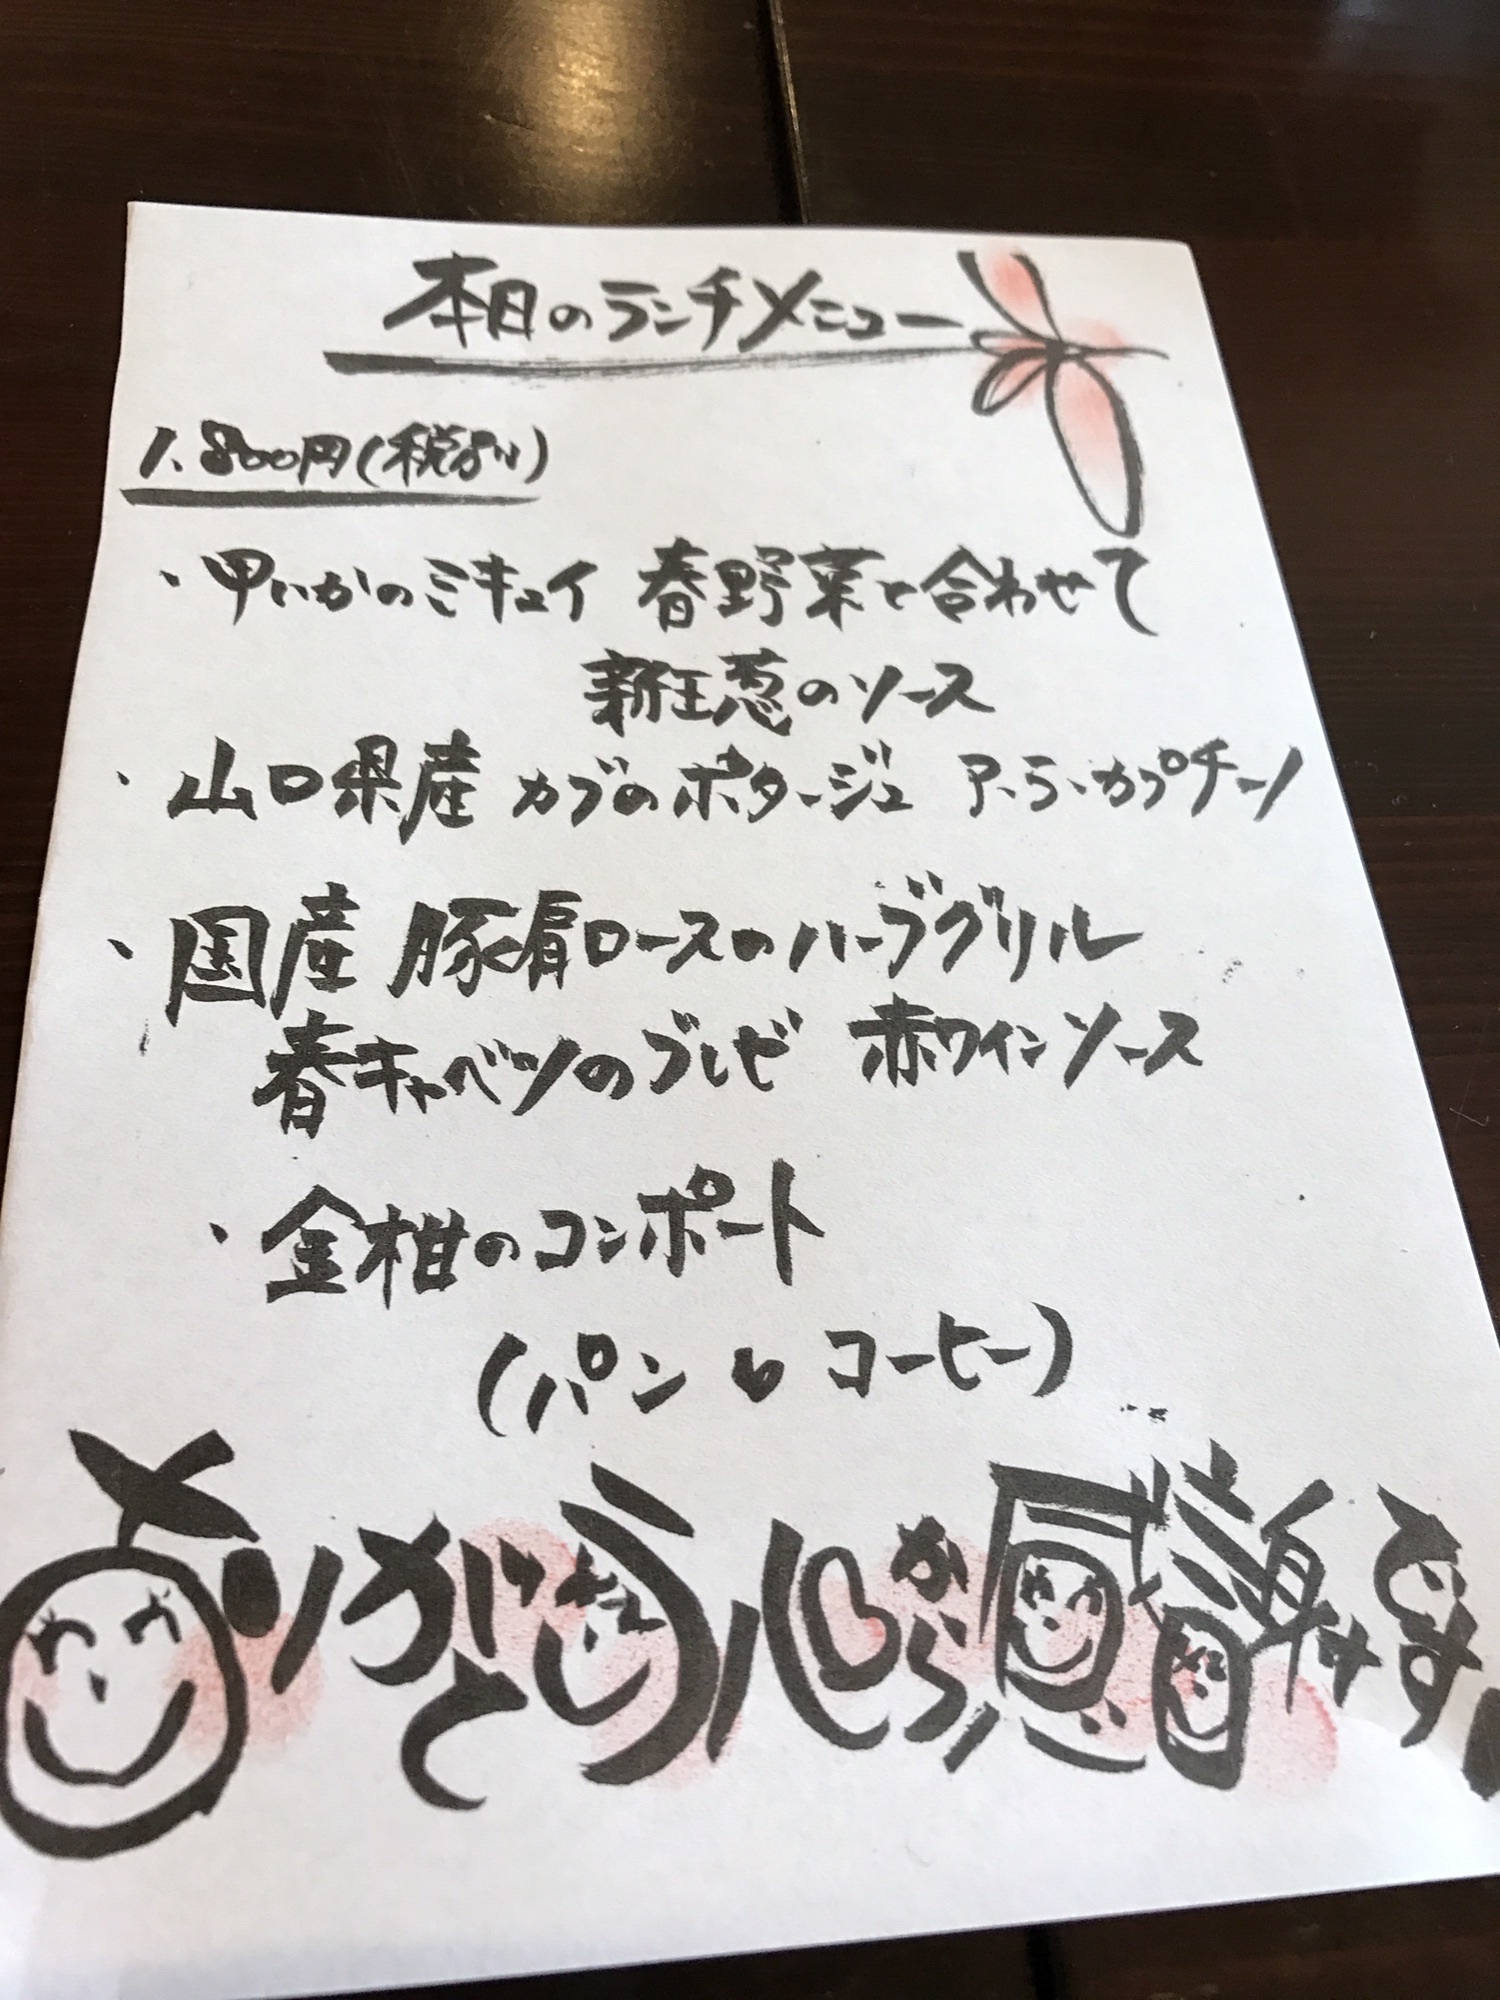 本日のランチメニュー
1.800円(税別)
・甲いかのミキュイ 春野菜と合わせて
新玉葱のソース
・山口県産 カブのポタージュ ア・ラ・カプチーノ
・国産 豚肩ロースのハーブグリル
春キャベツのブレゼ 赤ワインソース
・金柑のコンポート
(パン コーヒー)
ありがとう 心から感謝です!